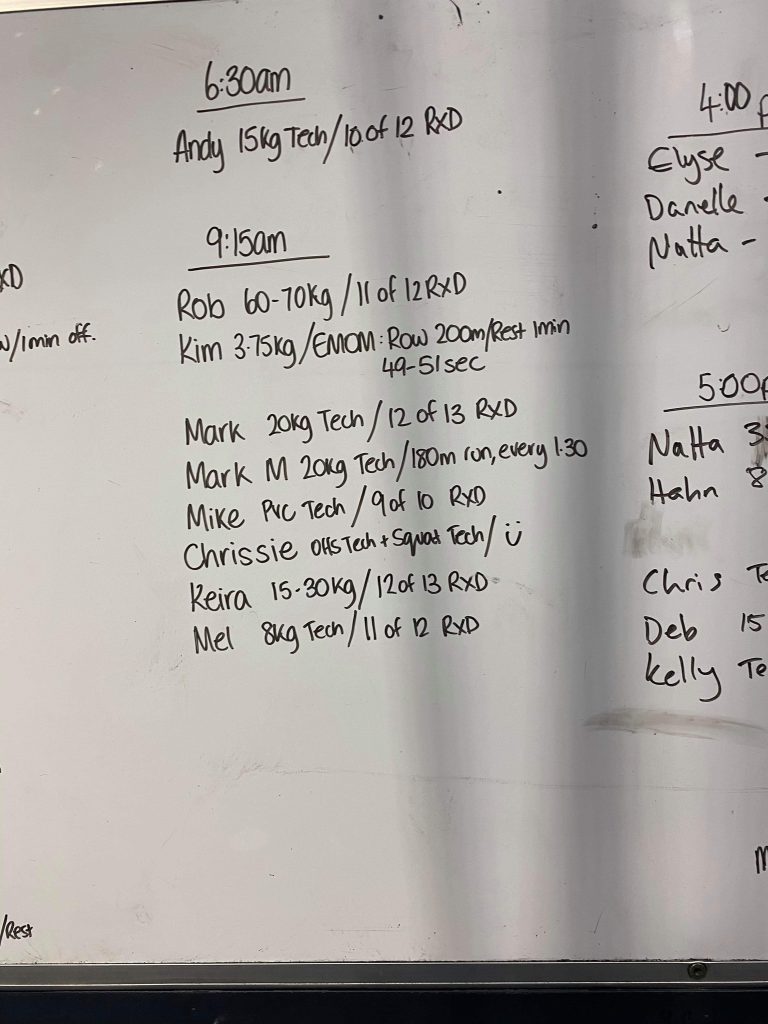 6:30am
Andy 15kg Tech/10 of 12 RXD
9:15am
Rob 60-70kg/11 of 12 RXD
Kim 3.75kg/EMOM: Row 200m/Rest 1min
49-51sec
Mark 20kg Tech/12 of 13 RXD
Mark M 20kg Tech/180m run, every 1.30
Mike PVC Tech/9 of 10 RXD
Chrissie OHS Tech + Squat Tech/ Ü
Keira 15-30kg/12 of 13 RXD
Mel 8kg Tech/11 of 12 RXD
XD
/1min off.
/Rest
4:00
Elyse -
Danelle -
Natta -
5:00p
Natta 3
Hahn 8
Chris Te
Deb 15
Kelly Te
M